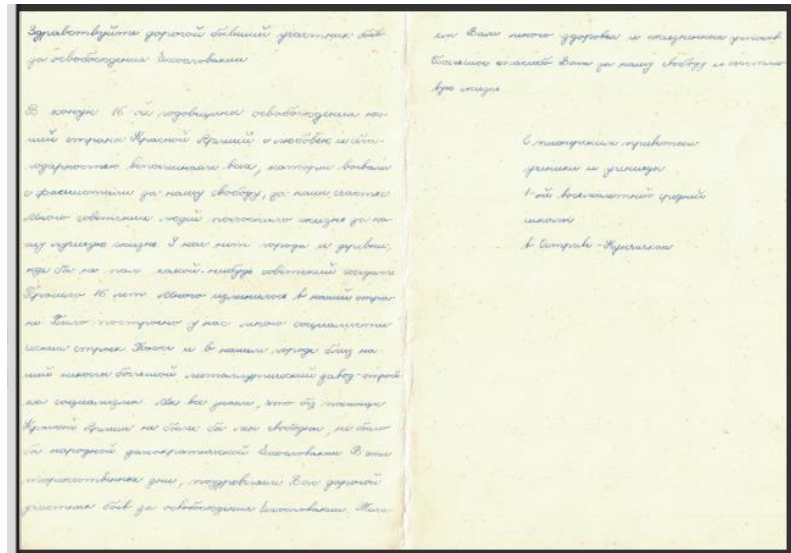 Здравствуйте дорогой бывший участник боёв
за освобождения Чехословакии
В канун 16 ой годовщины освобождения на-
шей страны Красной Армией с любовью и бла-
годарностью вспоминаем всех, которы воевали
с фашистами за нашу свободу, за наше счастье
Много советских людей положило жизнь за на-
шу лучшую жизнь. У нас нет города и деревни,
где бы не пал какой-нибудь советский солдат.
Прошло 16 лет. Много изменилось в нашей стра-
не. Было построено у нас много социалисти-
ческих строек. Также и в нашем городе близ на-
шей школы большой металлургический завод-строй
ка социализма. Мы все знаем, что без помощи
Красной Армии не были бы мы свободны, не было
бы народной демократической Чехословакии. В эти
торжественные дни, поздравляем Вам дорогой
участник боёв за освобождения Чехословакии. Жела-
ем Вам много здоровья и жизненных успехов
Большое спасибо Вам за нашу свободу и счастли-
вую жизнь
С пионерским приветом
ученики и ученицы
1-ой восьмилетней средней
школы
в Остраве - Кунчичках